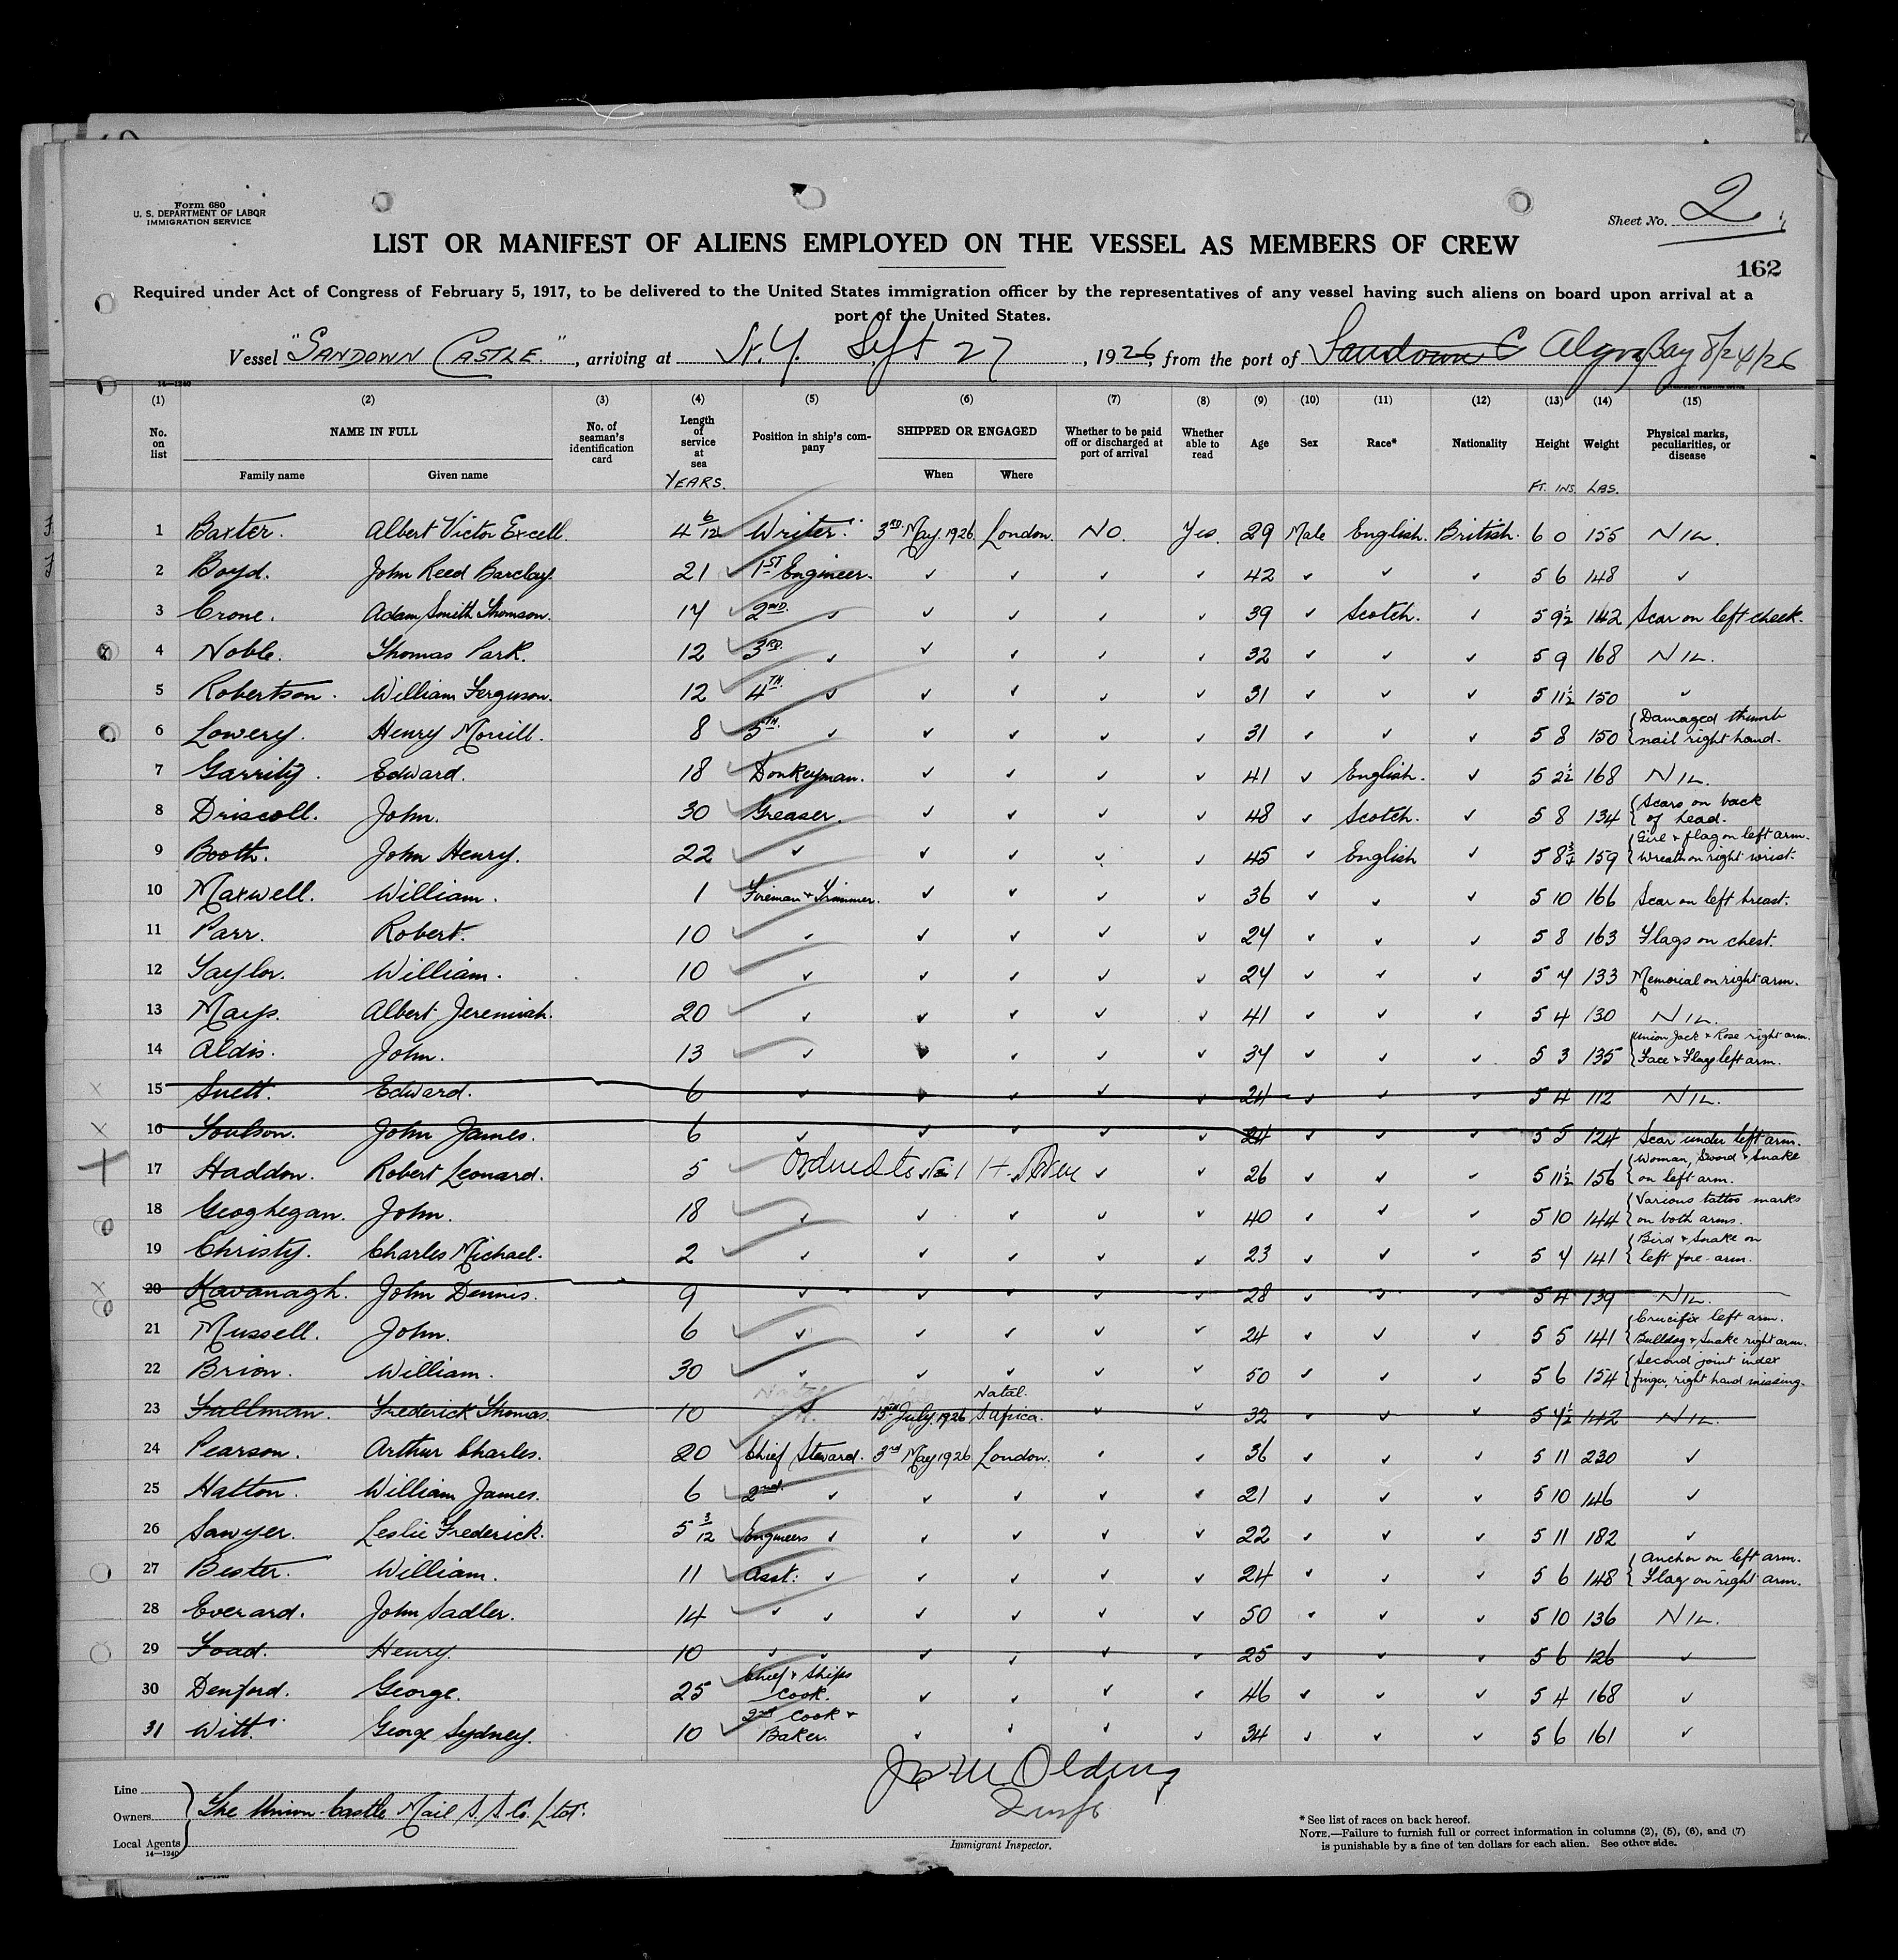 Form 680
U. S. DEPARTMENT OF LABOR
IMMIGRATION SERVICE
Sheet No. 2
LIST OR MANIFEST OF ALIENS EMPLOYED ON THE VESSEL AS MEMBERS OF CREW
162
Required under Act of Congress of February 5, 1917, to be delivered to the United States immigration officer by the representatives of any vessel having such aliens on board upon arrival at a
port of the United States.
Vessel "SANDOWN CASTLE.", arriving at N.Y. Sept 27, 1926, from the port of Sandown C Algoa Bay 8/24/26
14—1240
(1) (2) (3) (4) (5) (6) (7) (8) (9) (10) (11) (12) (13) (14) (15)
No. on list NAME IN FULL No. of seaman's identification card Length of service at sea Position in ship's company SHIPPED OR ENGAGED Whether to be paid off or discharged at port of arrival Whether able to read Age Sex Race* Nationality Height Weight Physical marks, peculiarities, or disease
Family name Given name When Where
YEARS. FT. INS. LBS.
1 Baxter. Albert Victor Excell. 4 6/12 Writer. 3RD May 1926 London. NO. Yes 29 Male English. British. 6 0 155 NIL.
2 Boyd. John Reed Barclay. 21 1ST Engineer. ✓ ✓ ✓ ✓ 42 ✓ ✓ ✓ 5 6 148 ✓
3 Crone. Adam Smith Thomson. 17 2ND. ✓ ✓ ✓ ✓ ✓ 39 ✓ Scotch. ✓ 5 9½ 142 Scar on left cheek.
4 Noble. Thomas Park. 12 3RD. ✓ ✓ ✓ ✓ ✓ 32 ✓ ✓ ✓ 5 9 168 NIL.
5 Robertson. William Ferguson. 12 4TH. ✓ ✓ ✓ ✓ ✓ 31 ✓ ✓ ✓ 5 11½ 150 ✓
6 Lowery. Henry Morrill. 8 5TH. ✓ ✓ ✓ ✓ ✓ 31 ✓ ✓ ✓ 5 8 150 Damaged thumb nail right hand.
7 Garrity. Edward. 18 Donkeyman. ✓ ✓ ✓ ✓ 41 ✓ English. ✓ 5 2½ 168 NIL.
8 Driscoll. John. 30 Greaser. ✓ ✓ ✓ ✓ 48 ✓ Scotch. ✓ 5 8 134 Scars on back of head.
9 Booth. John Henry. 22 ✓ ✓ ✓ ✓ ✓ 45 ✓ English ✓ 5 8¾ 159 Girl & flag on left arm. Wreath on right wrist.
10 Maxwell. William. 1 Fireman & Trimmer. ✓ ✓ ✓ ✓ 36 ✓ ✓ ✓ 5 10 166 Scar on left breast.
11 Parr. Robert. 10 ✓ ✓ ✓ ✓ ✓ 24 ✓ ✓ ✓ 5 8 163 Flags on chest.
12 Taylor. William. 10 ✓ ✓ ✓ ✓ ✓ 24 ✓ ✓ ✓ 5 7 133 Memorial on right arm.
13 Mays. Albert Jeremiah. 20 ✓ ✓ ✓ ✓ ✓ 41 ✓ ✓ ✓ 5 4 130 NIL.
14 Aldis. John. 13 ✓ ✓ ✓ ✓ ✓ 34 ✓ ✓ ✓ 5 3 135 Union Jack & Rose right arm. Face & Flags left arm.
15 Snett. Edward. 6 ✓ ✓ ✓ ✓ ✓ 24 ✓ ✓ ✓ 5 4 112 NIL.
16 Toulson. John James. 6 ✓ ✓ ✓ ✓ ✓ 24 ✓ ✓ ✓ 5 5 124 Scar under left arm.
17 Haddon. Robert Leonard. 5 Ordered to ✓ ✓ 26 ✓ ✓ ✓ 5 11½ 156 Woman, Sword & Snake on left arm.
18 Geoghegan. John. 18 ✓ ✓ ✓ ✓ ✓ 40 ✓ ✓ ✓ 5 10 144 Various tattoo marks on both arms.
19 Christy. Charles Michael. 2 ✓ ✓ ✓ ✓ ✓ 23 ✓ ✓ ✓ 5 7 141 Bird & Snake on left fore-arm.
20 Kavanagh. John Dennis. 9 ✓ ✓ ✓ ✓ ✓ 28 ✓ ✓ ✓ 5 4 139 NIL.
21 Mussell. John. 6 ✓ ✓ ✓ ✓ ✓ 24 ✓ ✓ ✓ 5 5 141 Crucifix left arm. Bulldog & Snake right arm.
22 Brion. William. 30 ✓ ✓ ✓ ✓ ✓ 50 ✓ ✓ ✓ 5 6 154 Second joint index finger, right hand missing.
23 Fullman. Frederick Thomas. 10 ✓ 15TH July. 1926 Natal. S. Africa. ✓ ✓ 32 ✓ ✓ ✓ 5 7½ 142 NIL.
24 Pearson. Arthur Charles. 20 Chief Steward. 3rd May 1926 London. ✓ ✓ 36 ✓ ✓ ✓ 5 11 230 ✓
25 Hatton. William James. 6 2nd. ✓ ✓ ✓ ✓ ✓ 21 ✓ ✓ ✓ 5 10 146 ✓
26 Sawyer. Leslie Frederick. 5 3/12 Engineers ✓ ✓ ✓ ✓ ✓ 22 ✓ ✓ ✓ 5 11 182 ✓
27 Bester. William. 11 Asst: ✓ ✓ ✓ ✓ ✓ 24 ✓ ✓ ✓ 5 6 148 Anchor on left arm. Flag on right arm.
28 Everard. John Sadler. 14 ✓ ✓ ✓ ✓ ✓ ✓ 50 ✓ ✓ ✓ 5 10 136 NIL.
29 Foad. Henry. 10 ✓ ✓ ✓ ✓ ✓ ✓ 25 ✓ ✓ ✓ 5 6 126 ✓
30 Denford. George. 25 Chief & Ships Cook. ✓ ✓ ✓ ✓ 46 ✓ ✓ ✓ 5 4 168 ✓
31 Witt. George Sydney. 10 2nd Cook & Baker. ✓ ✓ ✓ ✓ 34 ✓ ✓ ✓ 5 6 161 ✓
Line
Owners The Union-Castle Mail S.S. Co. Ltd.
Local Agents
14—1240
Immigrant Inspector.
* See list of races on back hereof.
NOTE.—Failure to furnish full or correct information in columns (2), (5), (6), and (7)
is punishable by a fine of ten dollars for each alien. See other side.